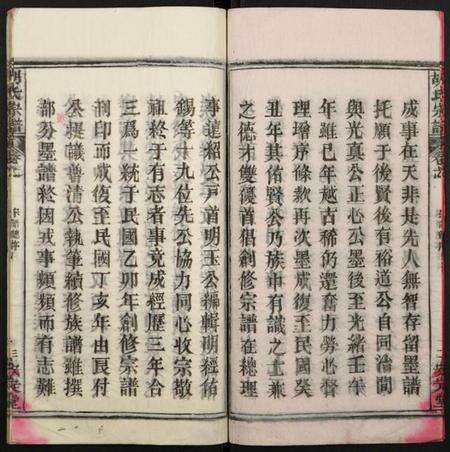 胡氏宗譜
成事在天非是先人無智存留墨譜
托願于後賢後有裕道公自同治間
與光真公正心公墨後至光緒壬午
年雖已年越古稀仍還奮力勞必督
理增序條款再次墨成復至民國癸
丑年其侑賢公乃族中有識之士兼
之德才雙優首猖創修宗譜在總理
事蓮紹公戸首明玉公編輯明經佑
錫等十九位先公協力同心收宗敬
祖終于有志者事竟成經歷三年合
三爲一統于民國乙卯年創修宗譜
刊印而成復至民國丁亥年由良付
公提議譜清公執筆續修族譜雖撰
部分墨譜終因戎事頻頻而有志難
胡氏宗譜